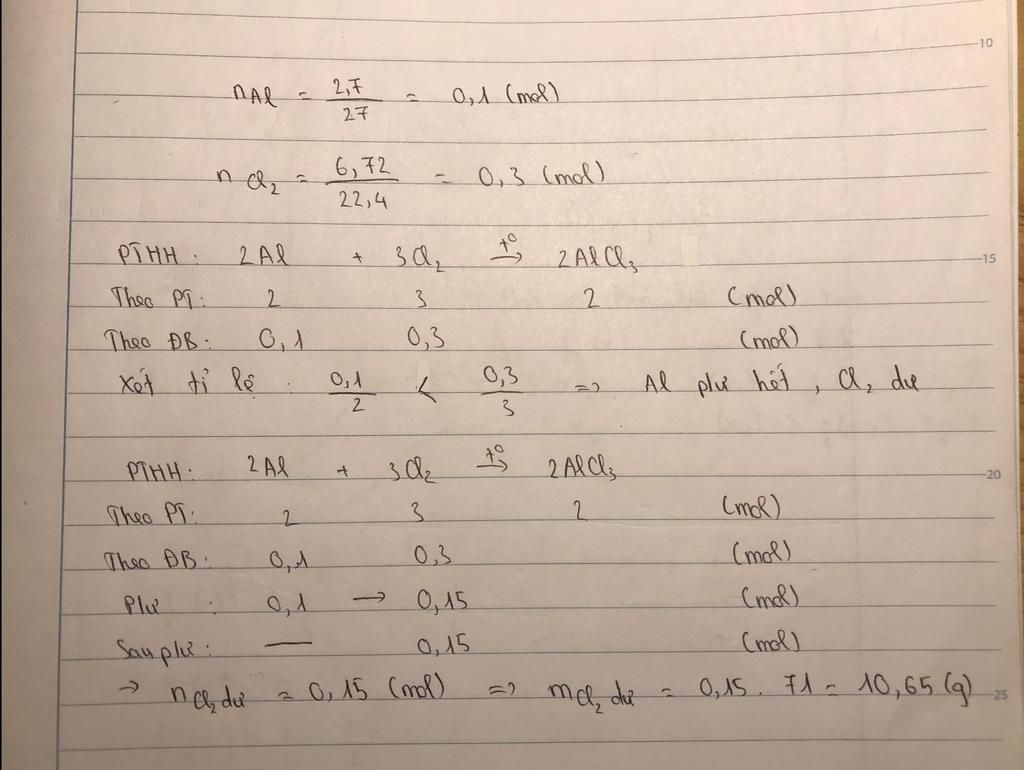 10
nAl = 2,7/27 = 0,1 (mol)
nCl₂ = 6,72/22,4 = 0,3 (mol)
PTHH: 2Al + 3Cl₂ t°→ 2AlCl₃
15
Theo PT: 2 3 2 (mol)
Theo ĐB: 0,1 0,3 (mol)
Xét tỉ lệ: 0,1/2 < 0,3/3 => Al pư hết, Cl₂ dư
PTHH: 2Al + 3Cl₂ t°→ 2AlCl₃
20
Theo PT: 2 3 2 (mol)
Theo ĐB: 0,1 0,3 (mol)
Pư: 0,1 → 0,15 (mol)
Sau pư: — 0,15 (mol)
→ nCl₂ dư = 0,15 (mol) => mCl₂ dư = 0,15 . 71 = 10,65 (g)
25